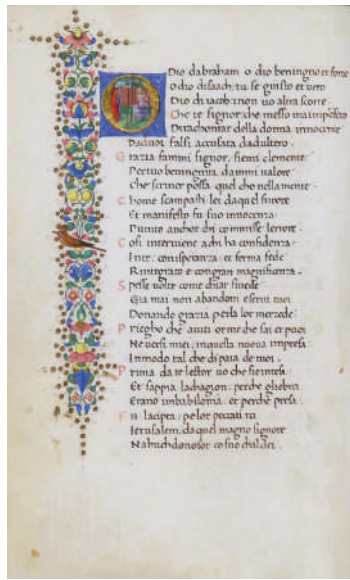 Dio dabraham o dio beningno et forte
o dio disaach: tu se giusto et vero
Dio di iacob: i non vo altra scorte
Che te signor: che messo mai
Di rachontar della donna innocente
Da duoi falsi accusata dadultero
Grazia fammi signor, siemi clemente
Per tuo beningnita dammi valore
Che scriver possa quel cho nella mente
Chome scampasti lei da quel furore
Et manifesto fu suo innocenza
Punito anchor chi commisse lerrore
Cosi interviene a chi ha confidenza
In te: con speranza: et ferma fede
Rintegrato e con gran magnificenza
Spesse volte come chiar si vede
Gia mai non abandoni e servi tuoi
Donando grazia per la lor merzede
Priegho che aiuti or me che sai et puoi
Ne versi miei: in questa nuova impresa
In modo tal che di paia de tuoi
Prima da te lettor vo che sie intesa
Et sappia lachagion: perche gliebrei
Erano in babilonia: et perche presa
Fu la cipta: pe lor peccati rei
Ierusalem: da quel magno signore
Nabuchdonosor co suo chaldei